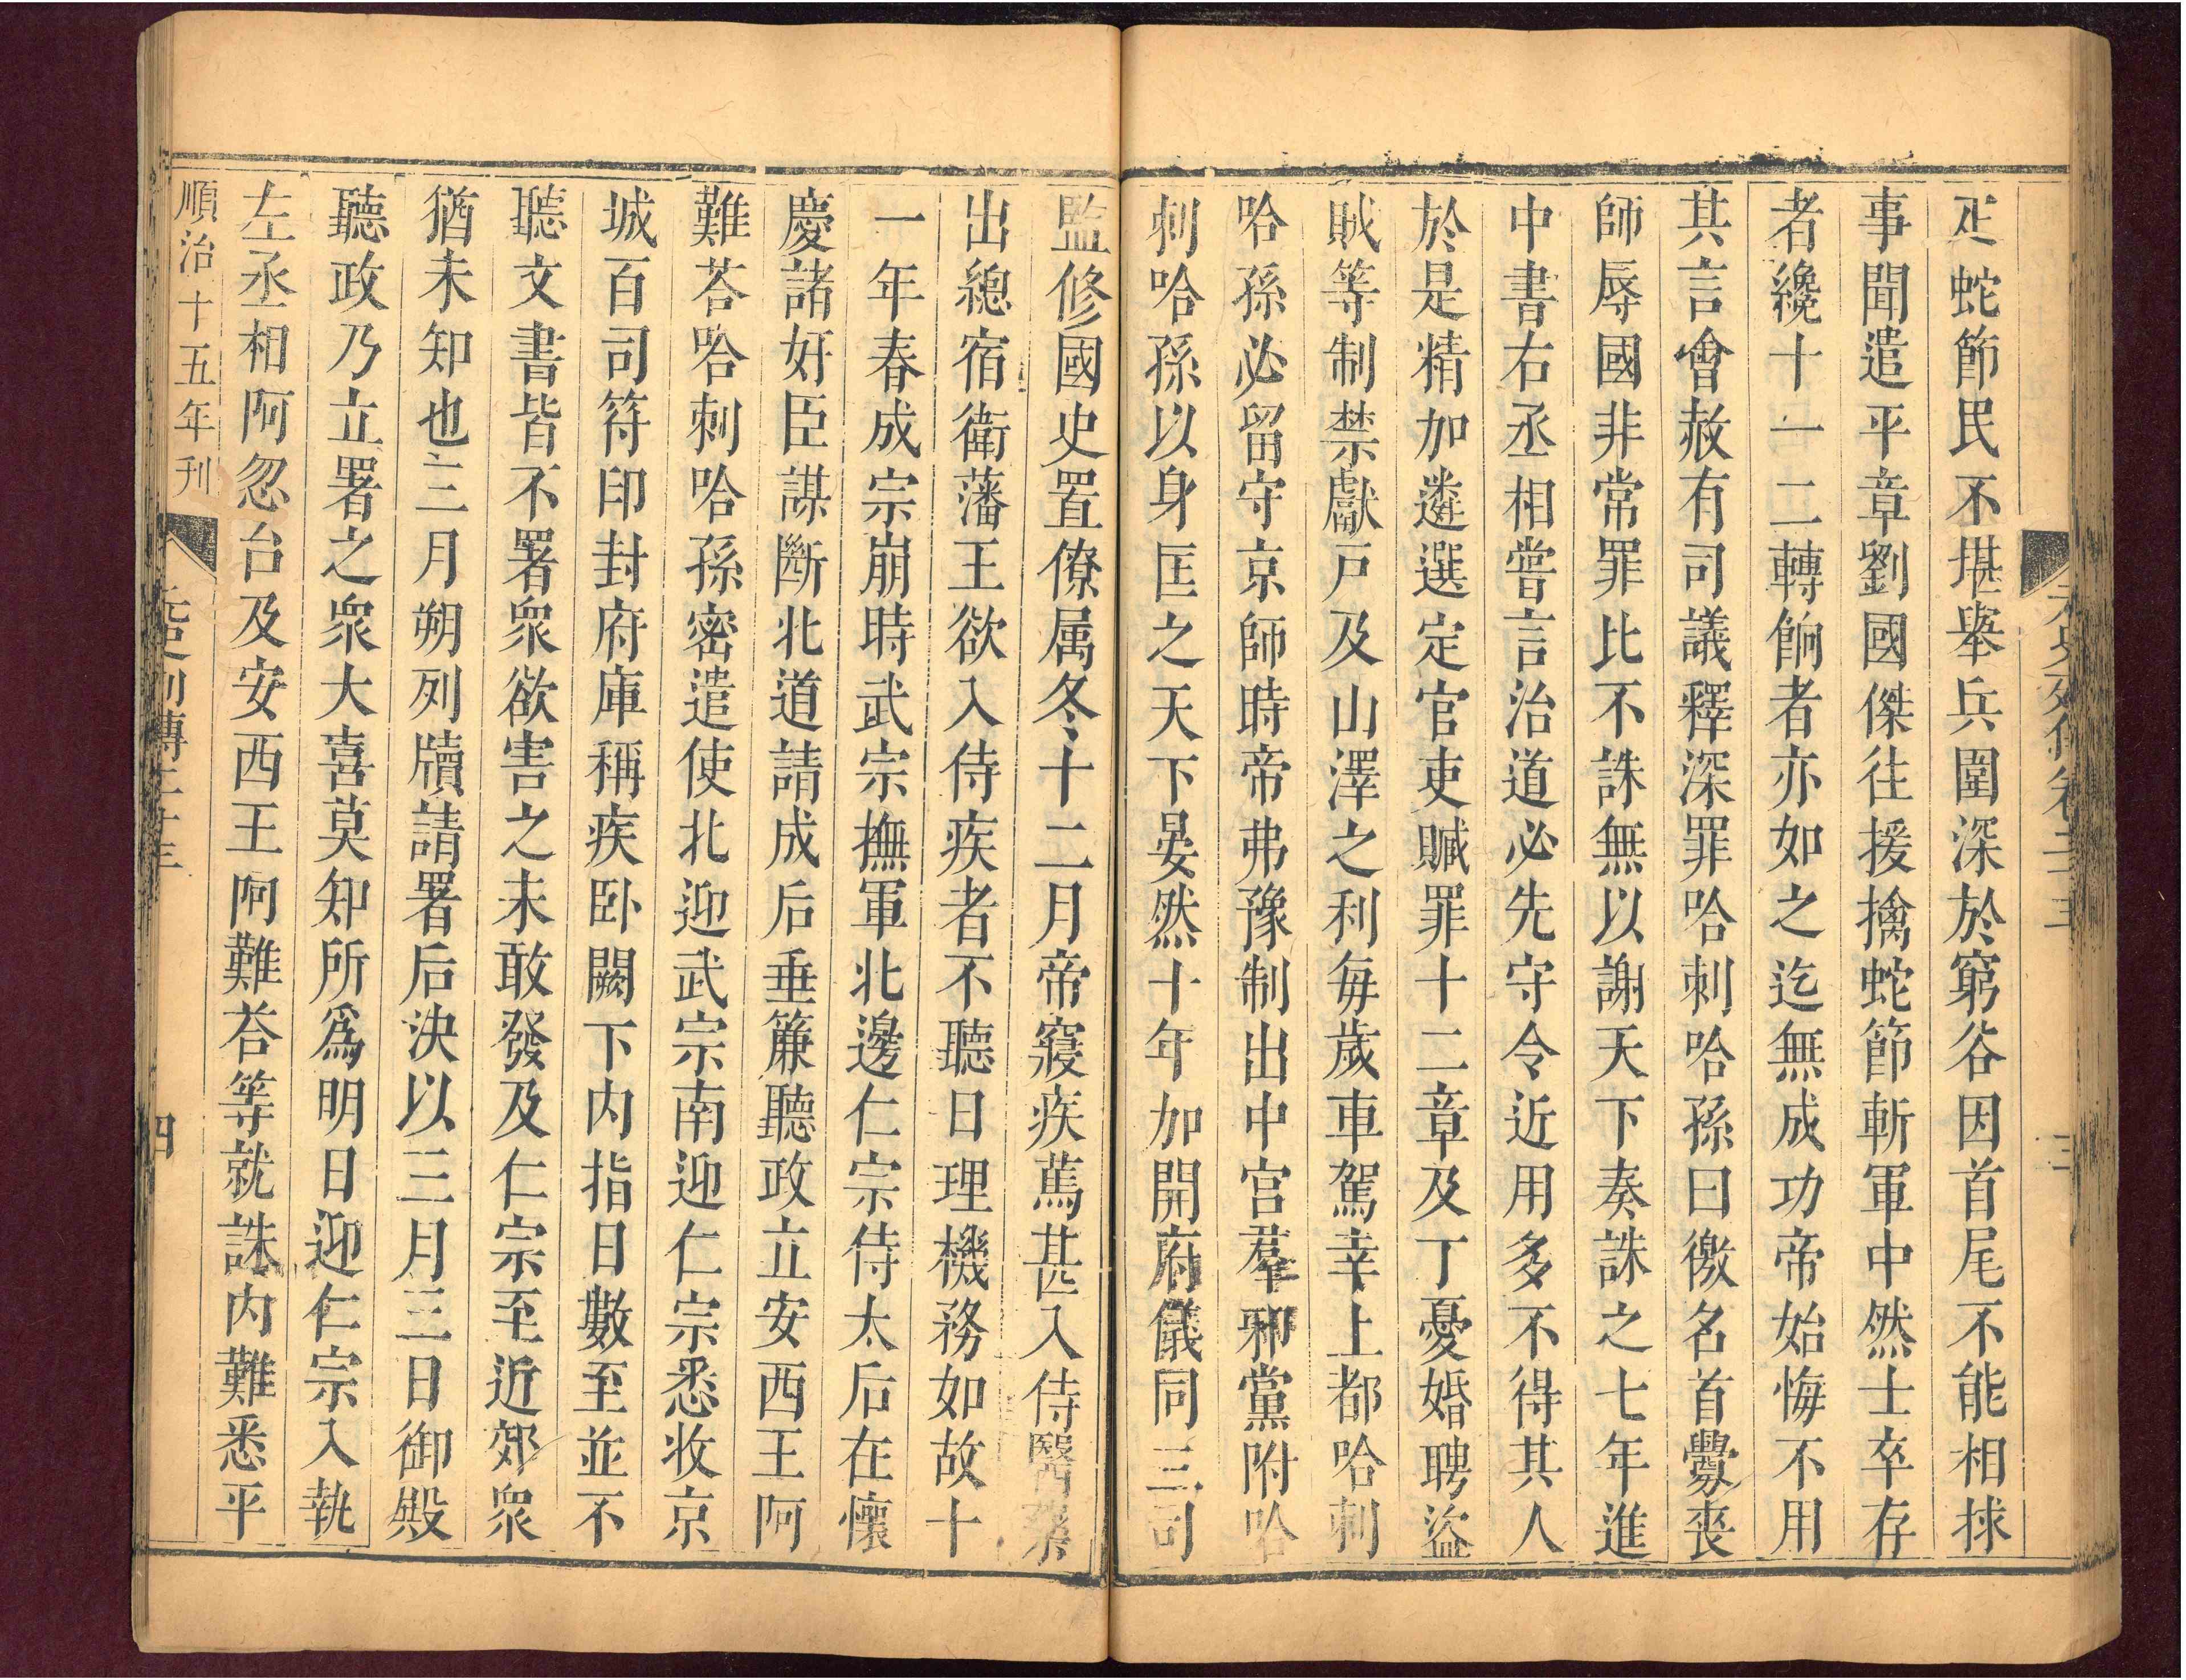 疋蛇節民不堪舉兵圍深於窮谷因首尾不能相捄
事聞遣平章劉國傑往援擒蛇節斬軍中然士卒存
者纔十一二轉餉者亦如之迄無成功帝始悔不用
其言會赦有司議釋深罪哈剌哈孫曰徼名首釁喪
師辱國非常罪比不誅無以謝天下奏誅之七年進
中書右丞相嘗言治道必先守令近用多不得其人
於是精加遴選定官吏贓罪十二章及丁憂婚聘盜
賊等制禁獻戸及山澤之利每歲車駕幸上都哈剌
哈孫必留守京師時帝弗豫制出中宫羣邪黨附哈
剌哈孫以身匡之天下晏然十年加開府儀同三司
監修國史置僚属冬十二月帝寢疾篤甚入侍醫藥
出總宿衛藩王欲入侍疾者不聽日理機務如故十
一年春成宗崩時武宗撫軍北邊仁宗侍太后在懷
慶諸奸臣謀斷北道請成后垂簾聽政立安西王阿
難荅哈剌哈孫密遣使北迎武宗南迎仁宗悉收京
城百司符印封府庫稱疾卧闕下内指日數至並不
聽文書皆不署衆欲害之未敢發及仁宗至近郊衆
猶未知也三月朔列牘請署后決以三月三日御殿
聽政乃立署之衆大喜莫知所爲明日迎仁宗入執
左丞相阿忽台及安西王阿難荅等就誅内難悉平
順治十五年刊
列傳
四